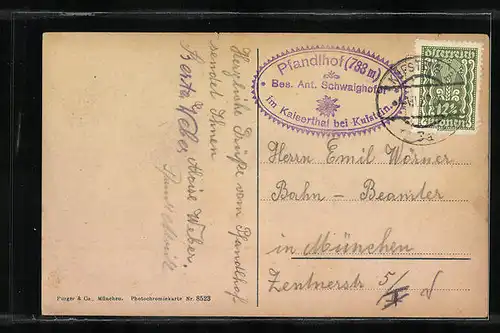 Herzliche Grüße vom Pfandlhof
sendet Ihnen
Berta Weber, Aloise Weber.
Pfandlhof (783 m)
Bes. Ant. Schwaighofer
im Kaiserthal bei Kufstein.
Österreich
12½
Kronen
Herrn Emil Wörner
Bahn - Beamter
in München
Zentnerstr 5/II
Purger & Co., München. Photochromiekarte Nr. 8523